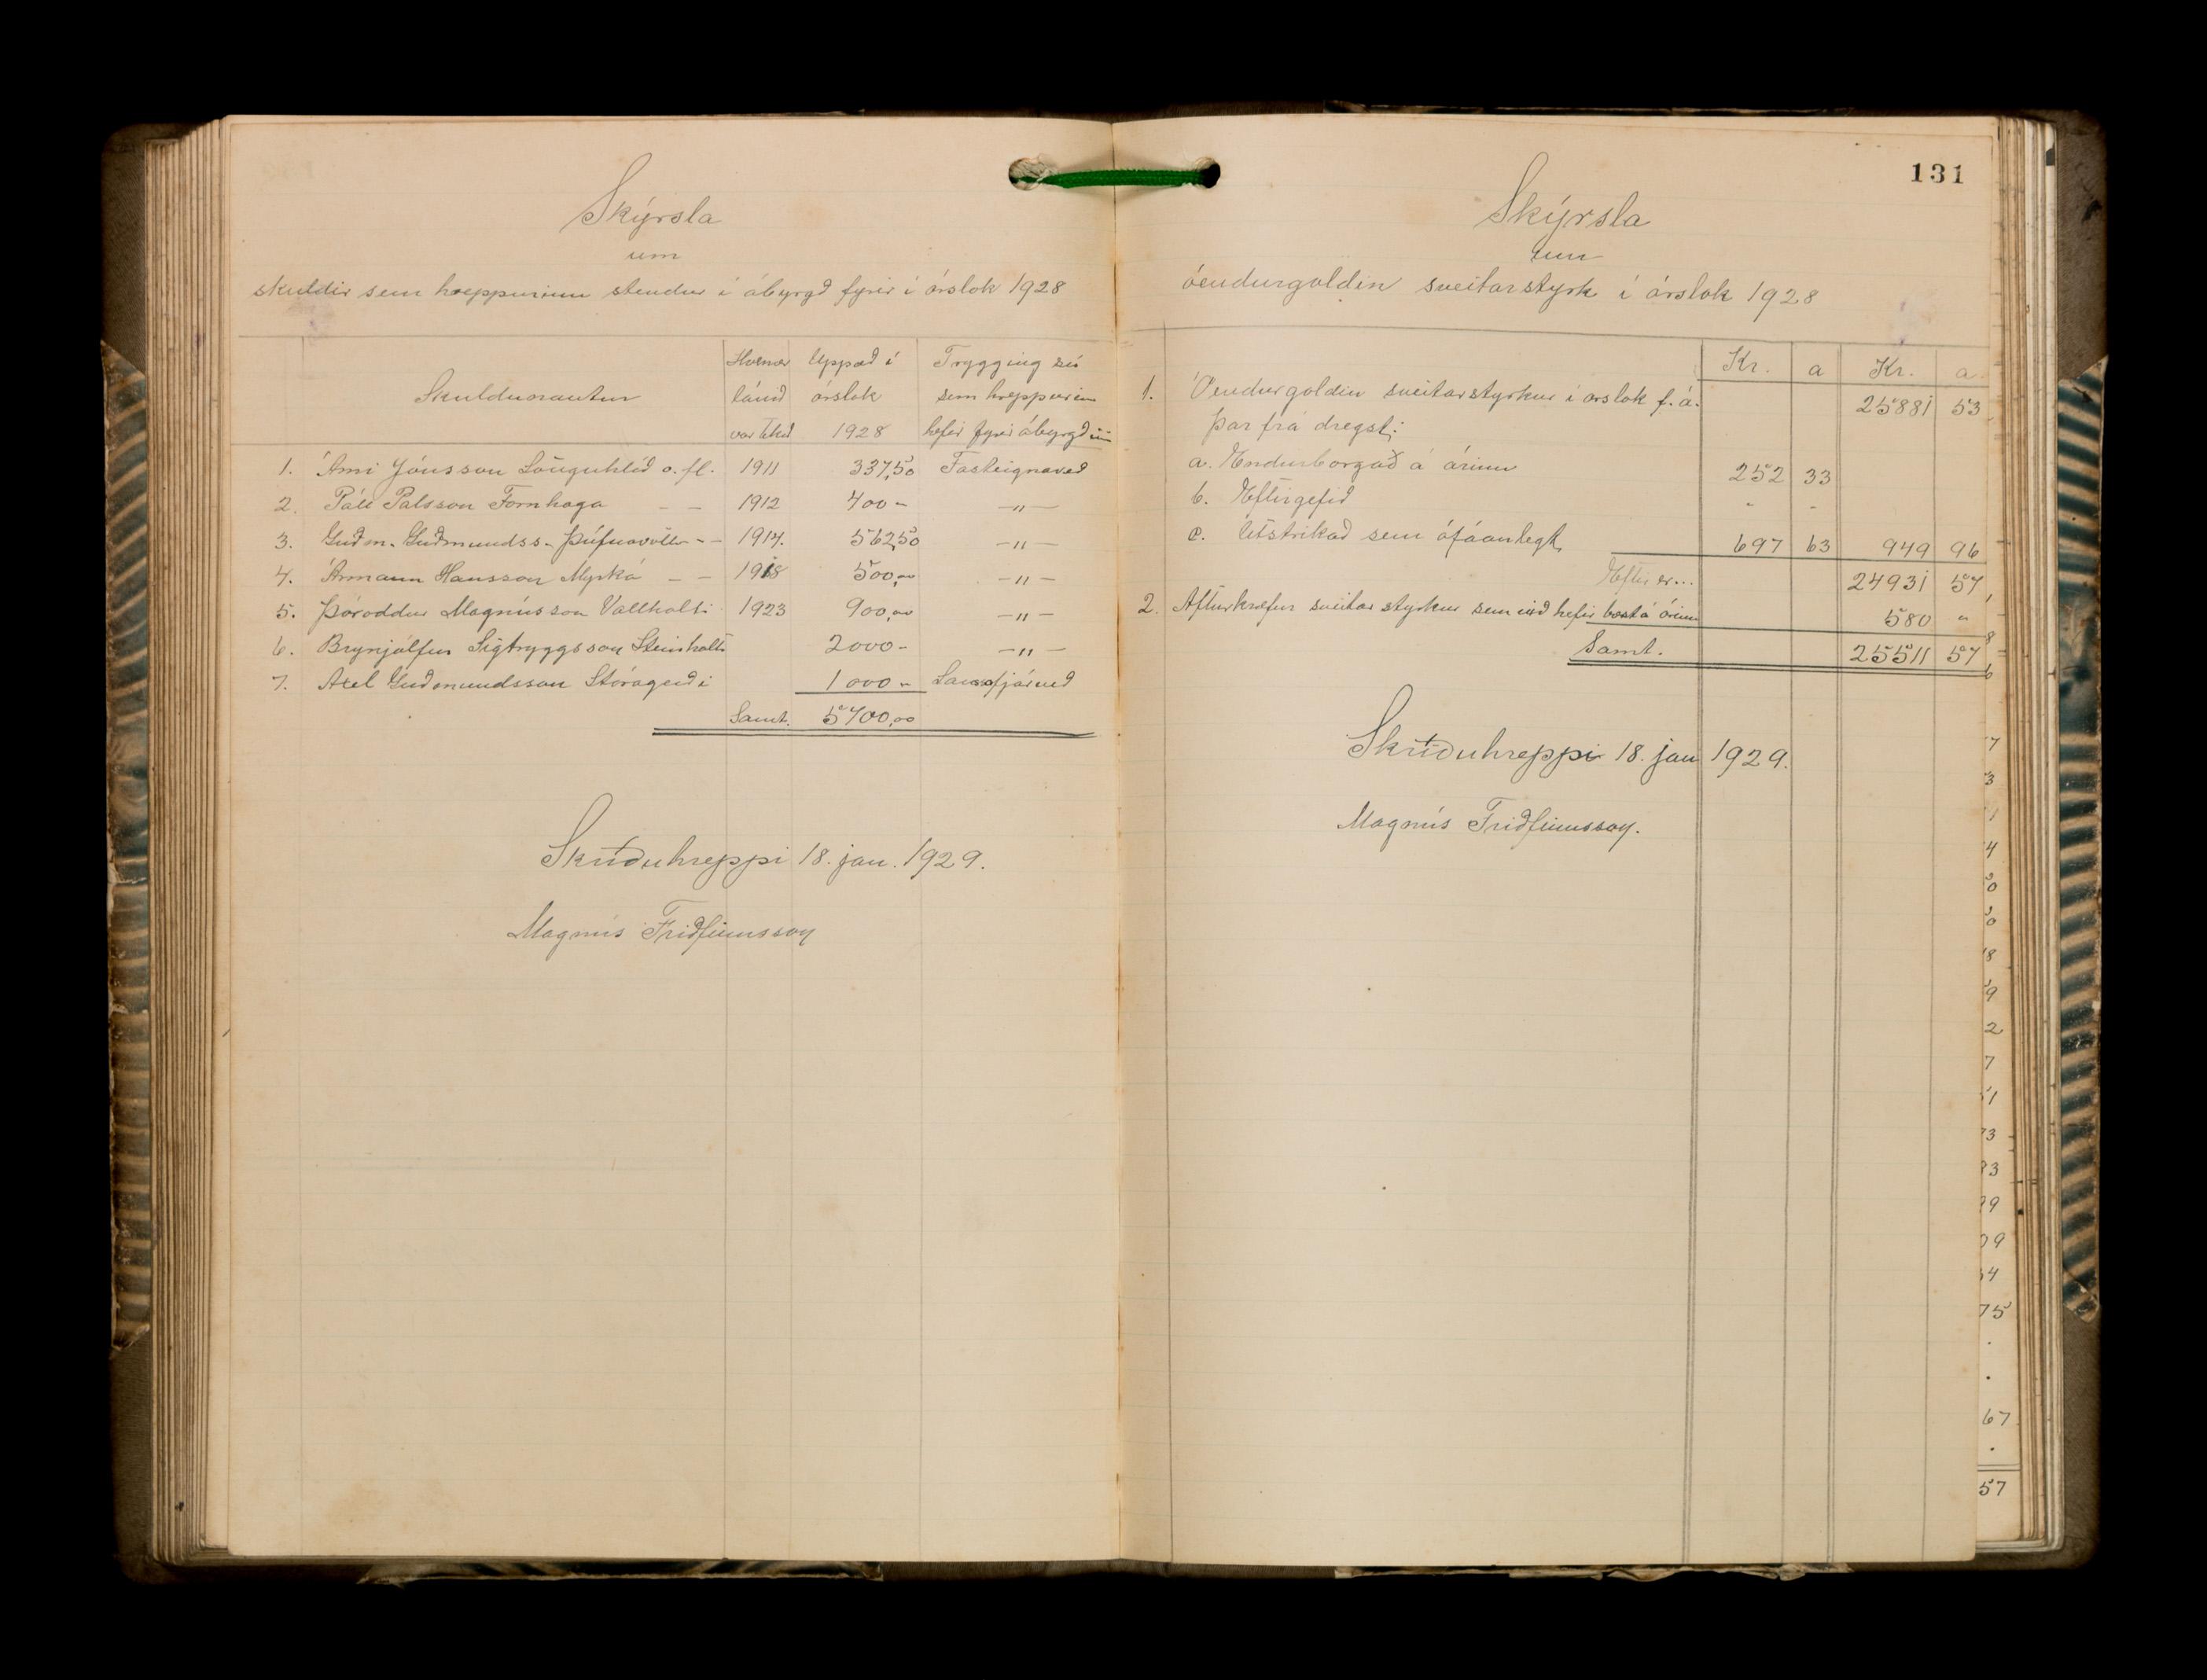 Skýrsla
um
skuldir sem hreppurinn stendur í ábyrgð fyrir í árslok 1928
Skuldunautur
Hvenær lánið var tekið
Uppæð í árslok 1928
Trygging sú sem hreppurinn hefir fyrir ábyrgðinni
1. Árni Jónsson Lönguhlíð o. fl. 1911 337,50 Fasteignaveð
2. Páll Pálsson Fornhaga - - 1912 400 - -"-
3. Guðm. Guðmundss. Þúfnavöllum - - 1917. 562,50 -"-
4. Ármann Hansson Myrká - - 1918 500,00 -"-
5. Þóroddur Magnússon Vallholti 1923 900,00 -"-
6. Brynjólfur Sigtryggsson Steinholti 2000 - -"-
7. Axel Guðmundsson Stóragerði 1000 - Lausafjárveð
Samt. 5700,00
Skriðuhreppi 18. jan. 1929.
Magnús Friðfinnsson
131
Skýrsla
um
óendurgoldin sveitarstyrk í árslok 1928
Kr. a Kr. a
1. Óendurgoldin sveitarstyrkur í árslok f. á. 25881 53
Þar frá dregst:
a. Endurborgað á árinu 252 33
b. Eftirgefið - -
c. Útstrikað sem ófáanlegt 697 63 949 96
Eftir er... 24931 57
2. Afturkræfur sveitarstyrkur sem við hefir bæst á árinu 580 "
Samt. 25511 57
Skriðuhreppi 18. jan 1929.
Magnús Friðfinnsson.